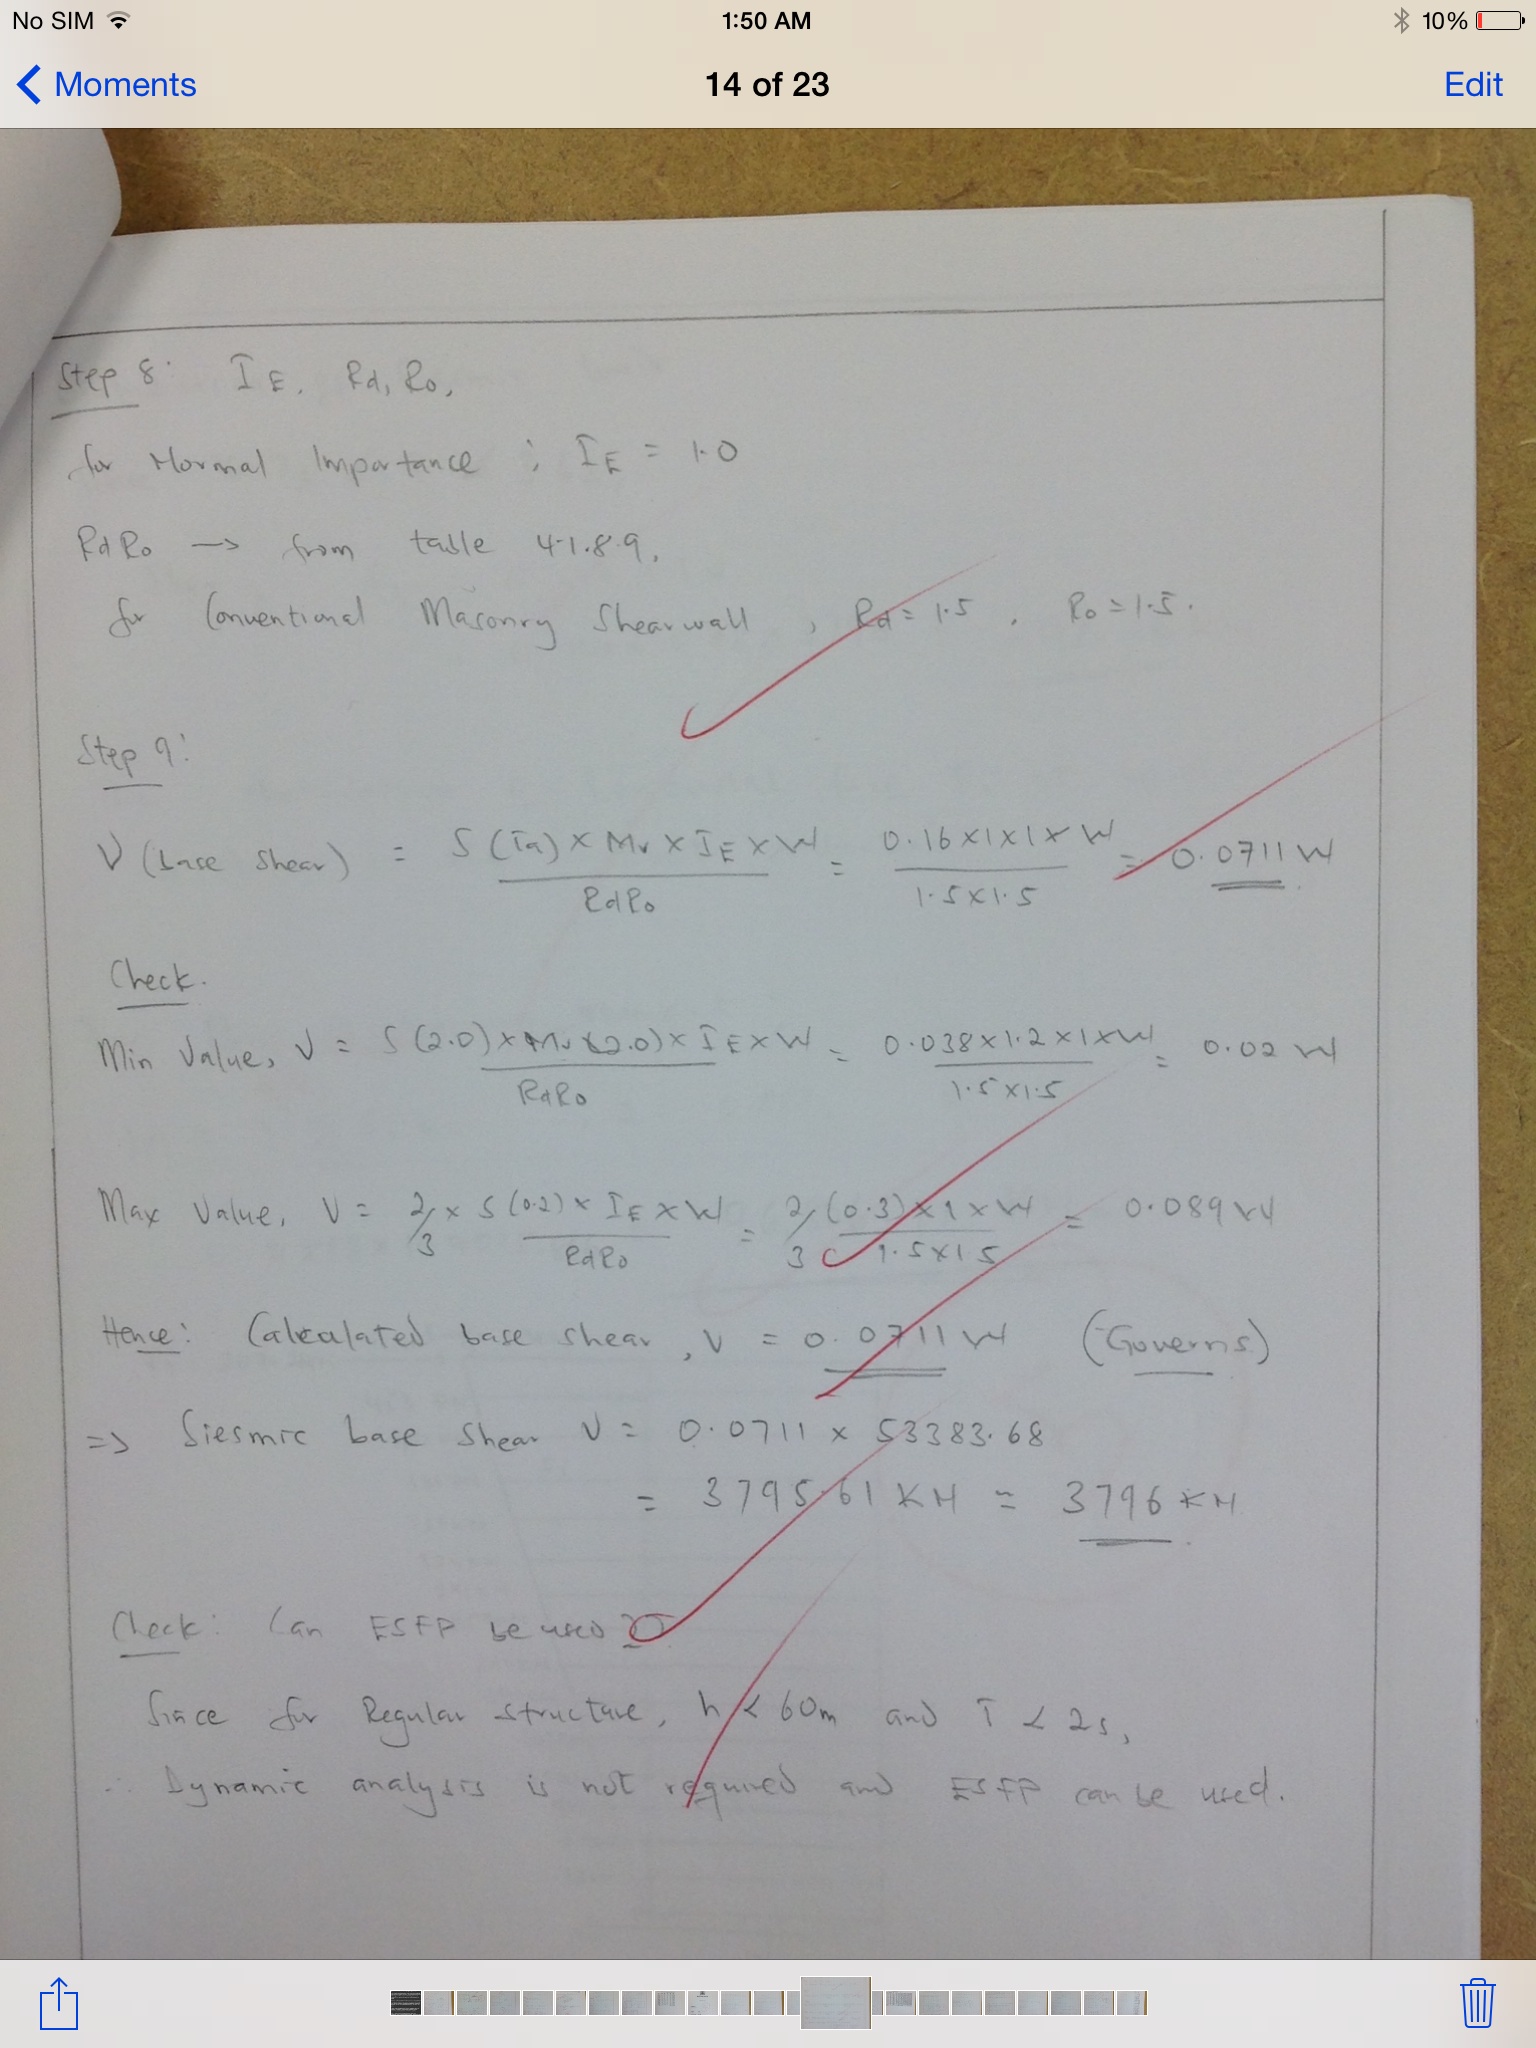 No SIM 1:50 AM 10%
Moments 14 of 23 Edit
Step 8: IE, Rd, Ro,
for Normal Importance ; IE = 1.0
RdRo → from table 4.1.8.9,
for Conventional Masonry Shearwall , Rd = 1.5 , Ro = 1.5.
Step 9:
V (base shear) = S(Ta) x Mv x IE x W / RdRo = 0.16x1x1x W / 1.5x1.5 = 0.0711 W
Check.
Min Value, V = S(2.0) x Mv (2.0) x IE x W / RdRo = 0.038x1.2x1xW / 1.5x1.5 = 0.02 W
Max Value, V = 2/3 x S(0.2) x IE x W / RdRo = 2/3 (0.3) x 1 x W / 1.5x1.5 = 0.089 W
Hence: Calculated base shear, V = 0.0711 W (Governs)
=> Siesmic base shear V = 0.0711 x 53383.68
= 3795.61 KN = 3796 KN
Check: Can ESFP be used ?
Since for Regular structure, h < 60m and T < 2s,
∴ Dynamic analysis is not required and ESFP can be used.